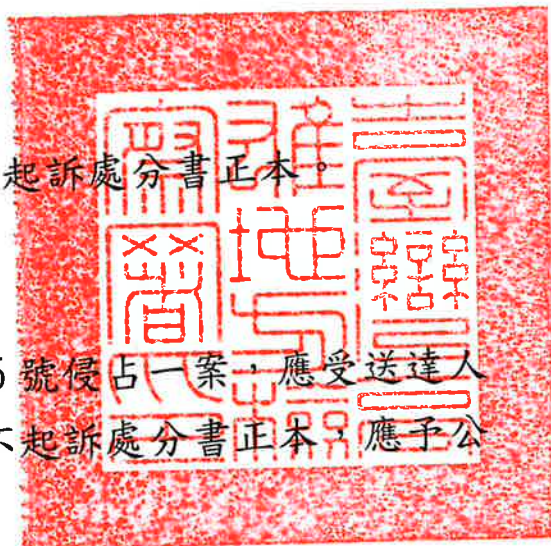 起訴處分書正本。
號侵占一案，應受送達人
起訴處分書正本，應予公
臺灣高
雄地方檢
察署印